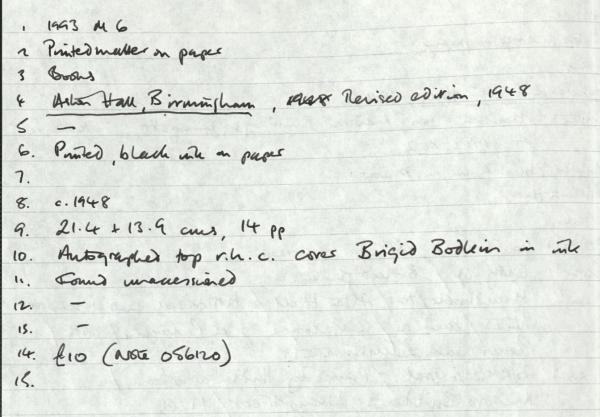 1 1993 M 6
2 Printed matter on paper
3 Books
4 Aston Hall, Birmingham, 1948 Revised edition, 1948
5 —
6. Printed, black ink on paper
7.
8. c. 1948
9. 21.4 + 13.9 cms, 14 pp
10. Autographed top r.h.c. cover Brigid Bodkin in ink
11. Found unaccessioned
12. —
13. —
14. £10 (Note 056120)
15.